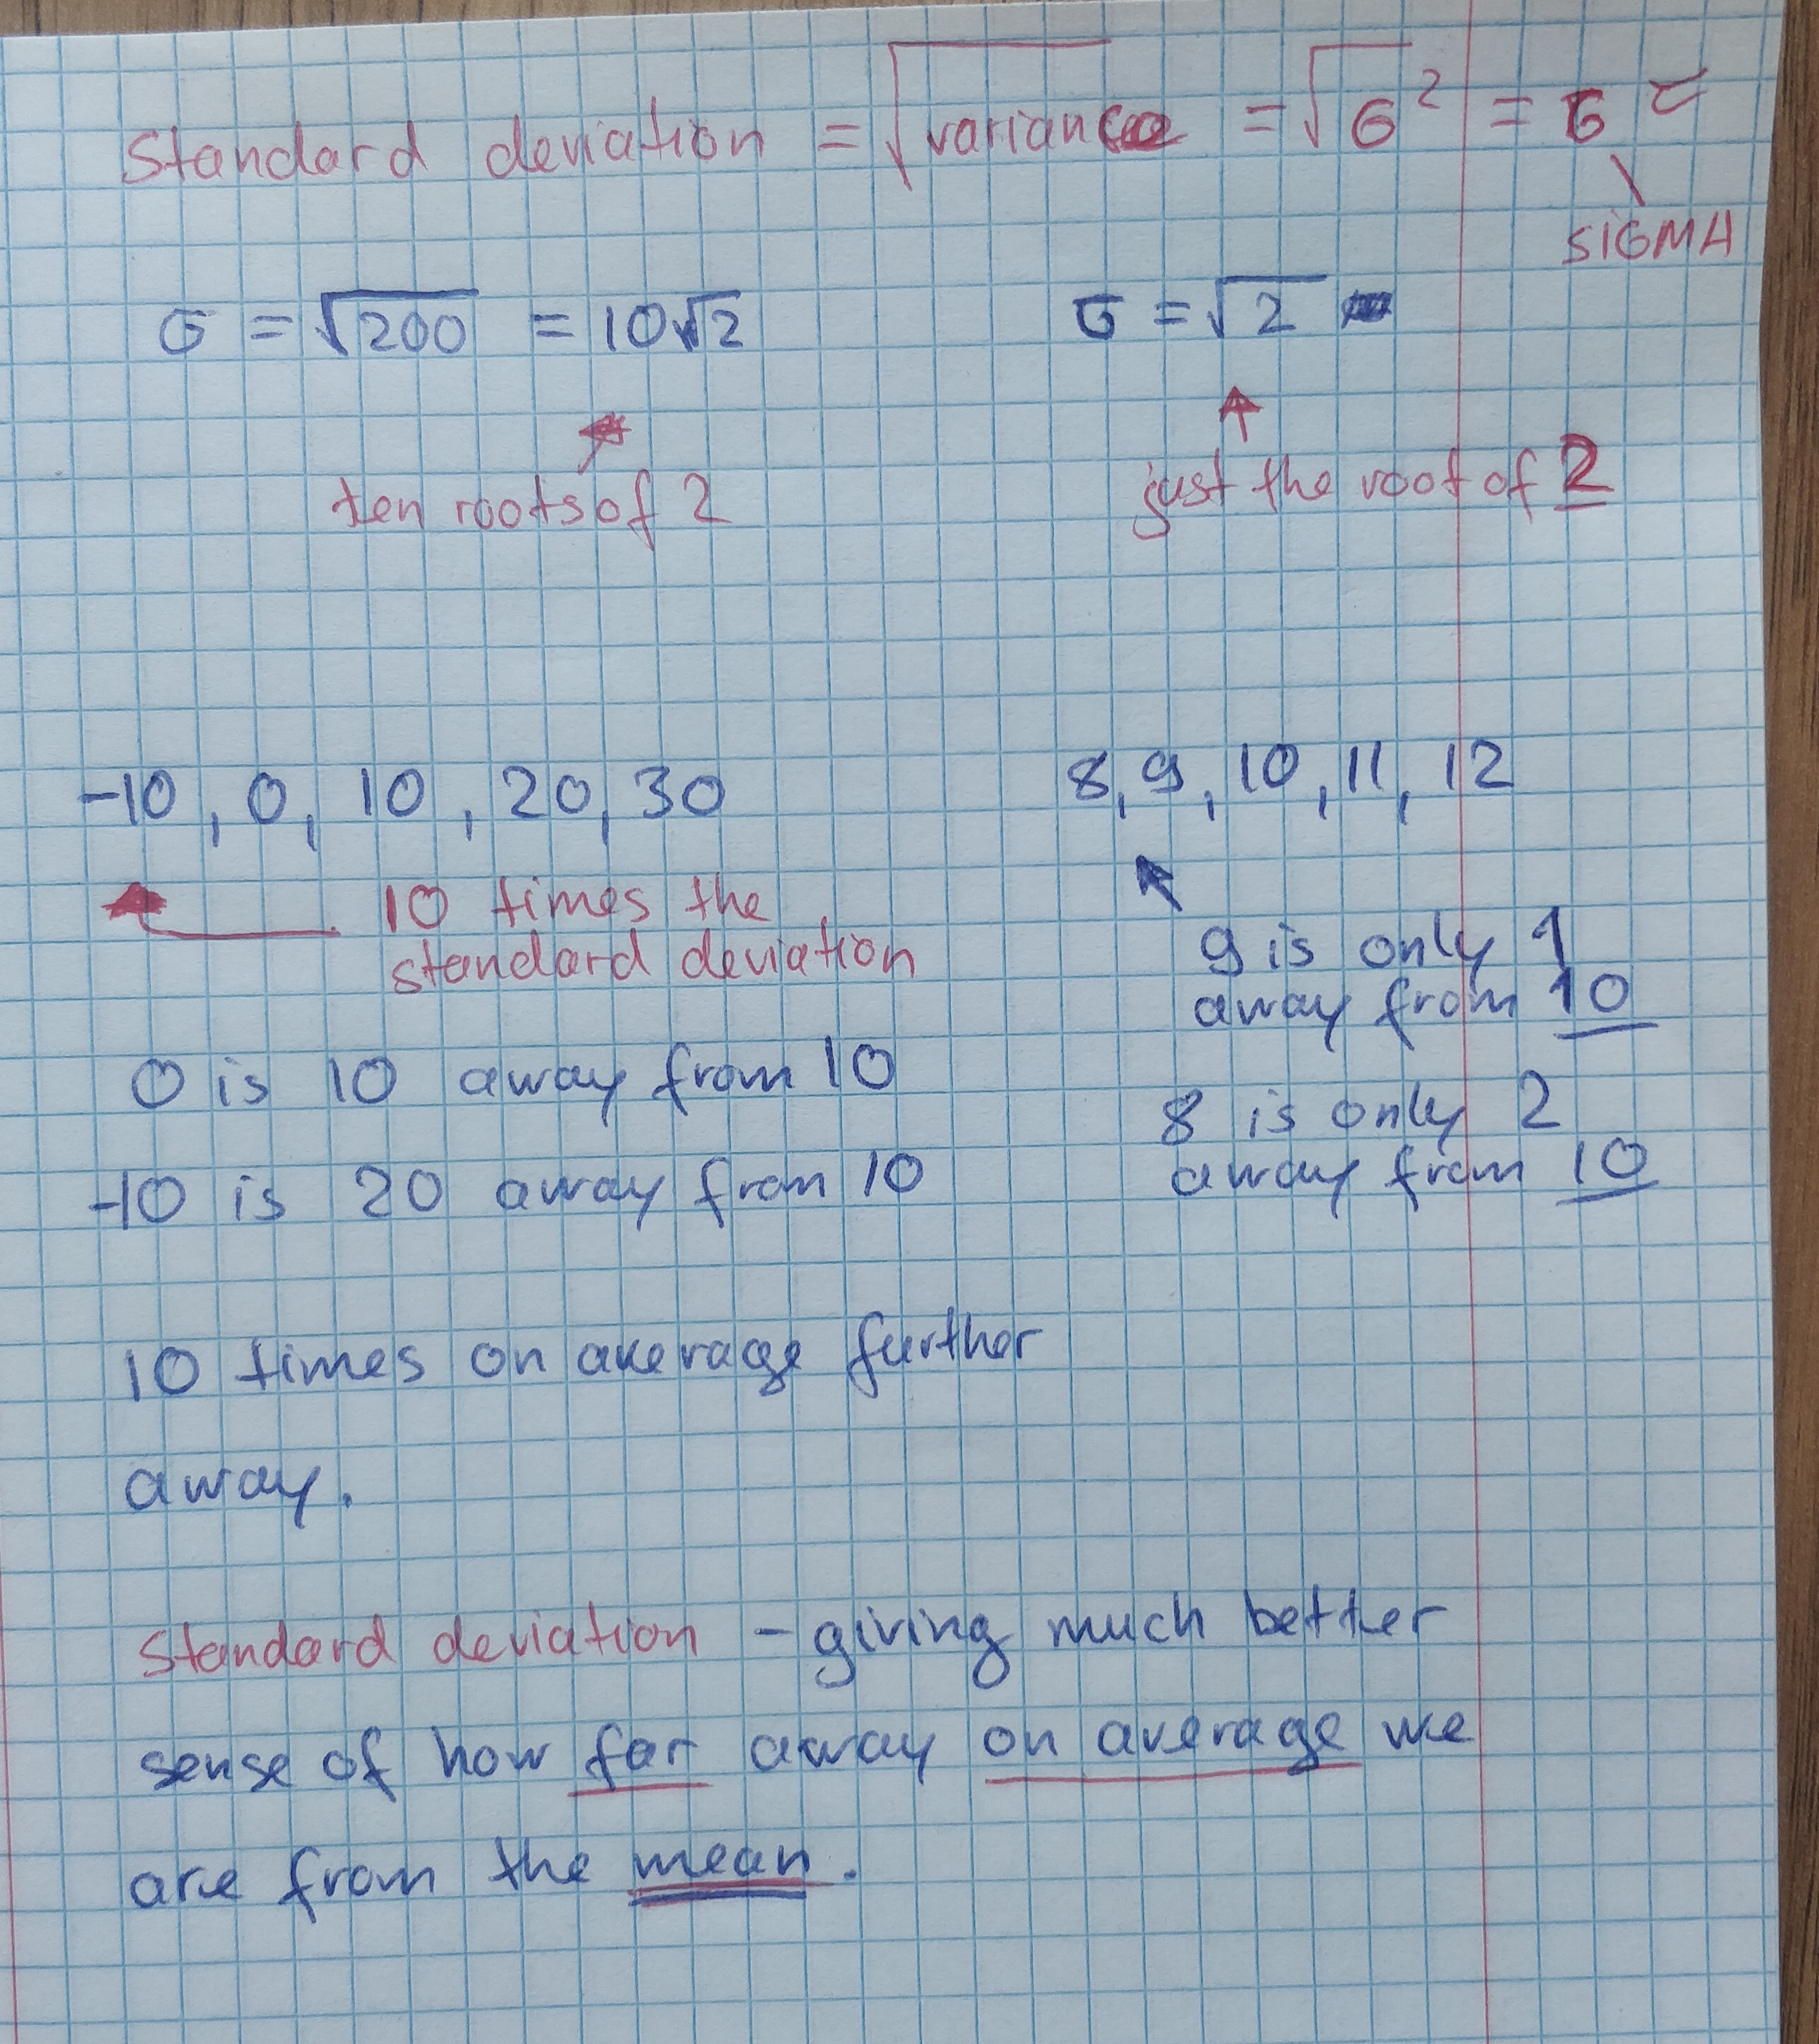 Standard deviation = √variance = √σ² = σ =
SIGMA
σ = √200 = 10√2
σ = √2
ten roots of 2
just the root of 2
-10, 0, 10, 20, 30
8, 9, 10, 11, 12
10 times the
standard deviation
9 is only 1
away from 10
0 is 10 away from 10
8 is only 2
away from 10
-10 is 20 away from 10
10 times on average further
away.
Standard deviation - giving much better
sense of how far away on average we
are from the mean.